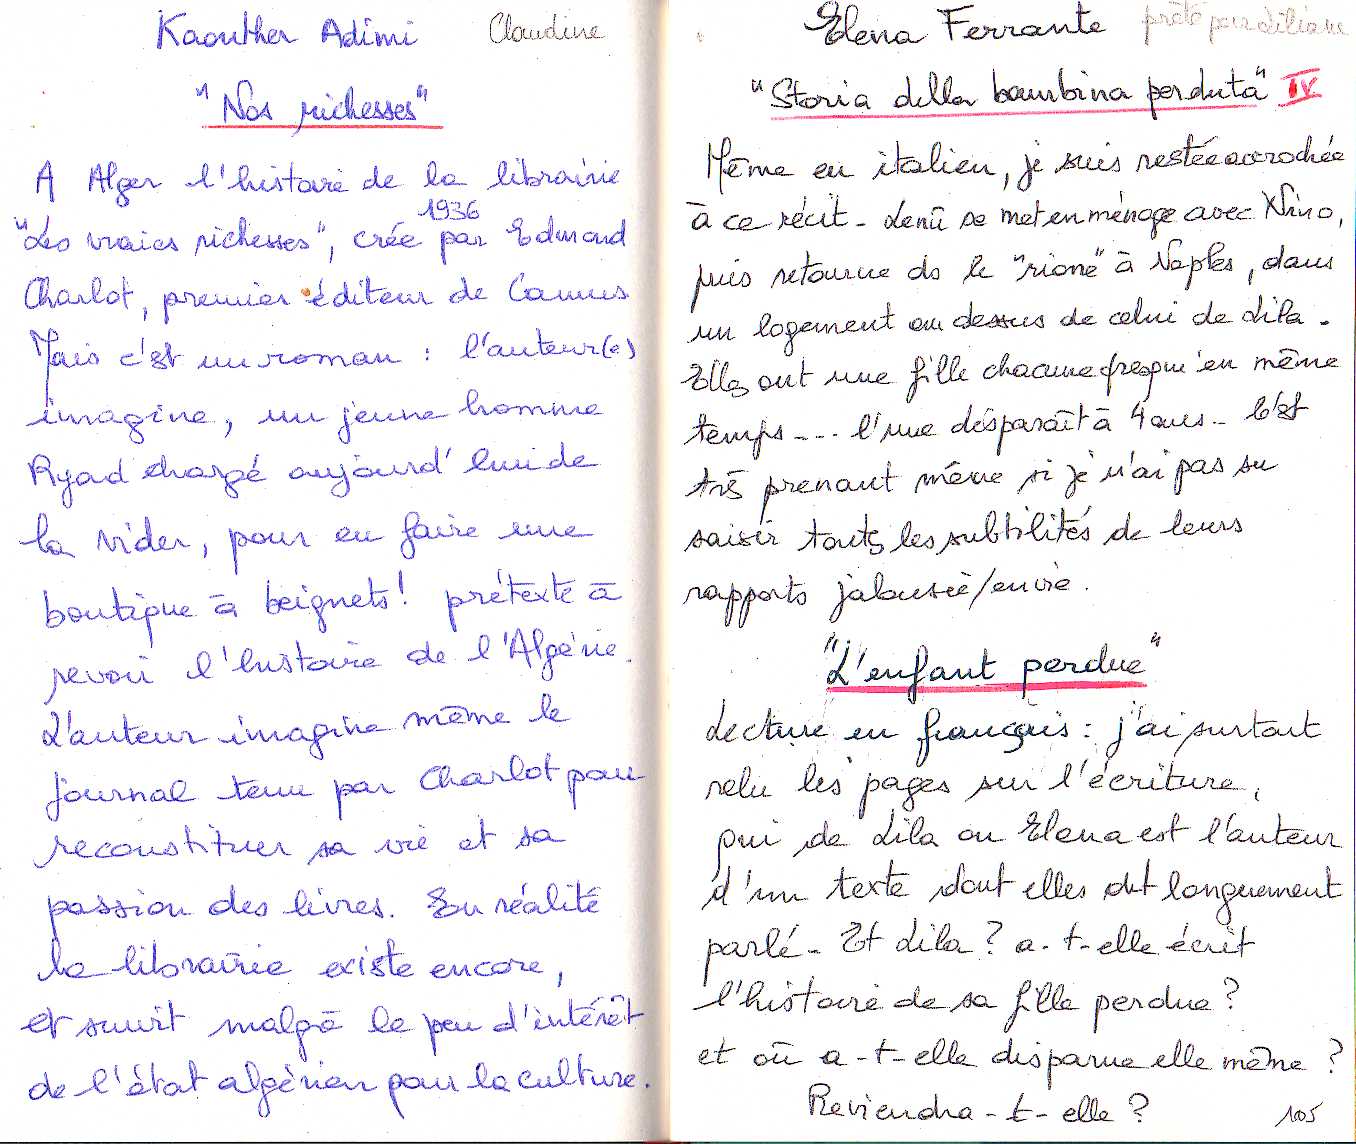 Kaouther Adimi Claudine
"Nos richesses"
A Alger l'histoire de la librairie
1936
"Les vraies richesses", crée par Edmond
Charlot, premier éditeur de Camus
Mais c'est un roman : l'auteur(e)
imagine, un jeune homme
Ryad chargé aujourd'hui de
la vider, pour en faire une
boutique à beignets! prétexte à
revoir l'histoire de l'Algérie.
L'auteur imagine même le
journal tenu par Charlot pour
reconstituer sa vie et sa
passion des livres. En réalité
la librairie existe encore,
et survit malgré le peu d'intérêt
de l'état algérien pour la culture.
Elena Ferrante prêté par Liliane
"Storia della bambina perduta" IV
Même en italien, je suis restée accrochée
à ce récit - Lenù se met en ménage avec Nino,
puis retourne ds le "rione" à Naples, dans
un logement au dessus de celui de Lila.
Elles ont une fille chacune presqu'en même
temps... l'une disparaît à 4 ans.. C'est
très prenant même si je n'ai pas su
saisir toutes les subtilités de leurs
rapports jalousie/envie.
"L'enfant perdue"
Lecture en français : j'ai surtout
relu les pages sur l'écriture,
qui de Lila ou Elena est l'auteur
d'un texte dont elles ont longuement
parlé - Et Lila ? a-t-elle écrit
l'histoire de sa fille perdue ?
et où a-t-elle disparue elle même ?
Reviendra-t-elle ? 105